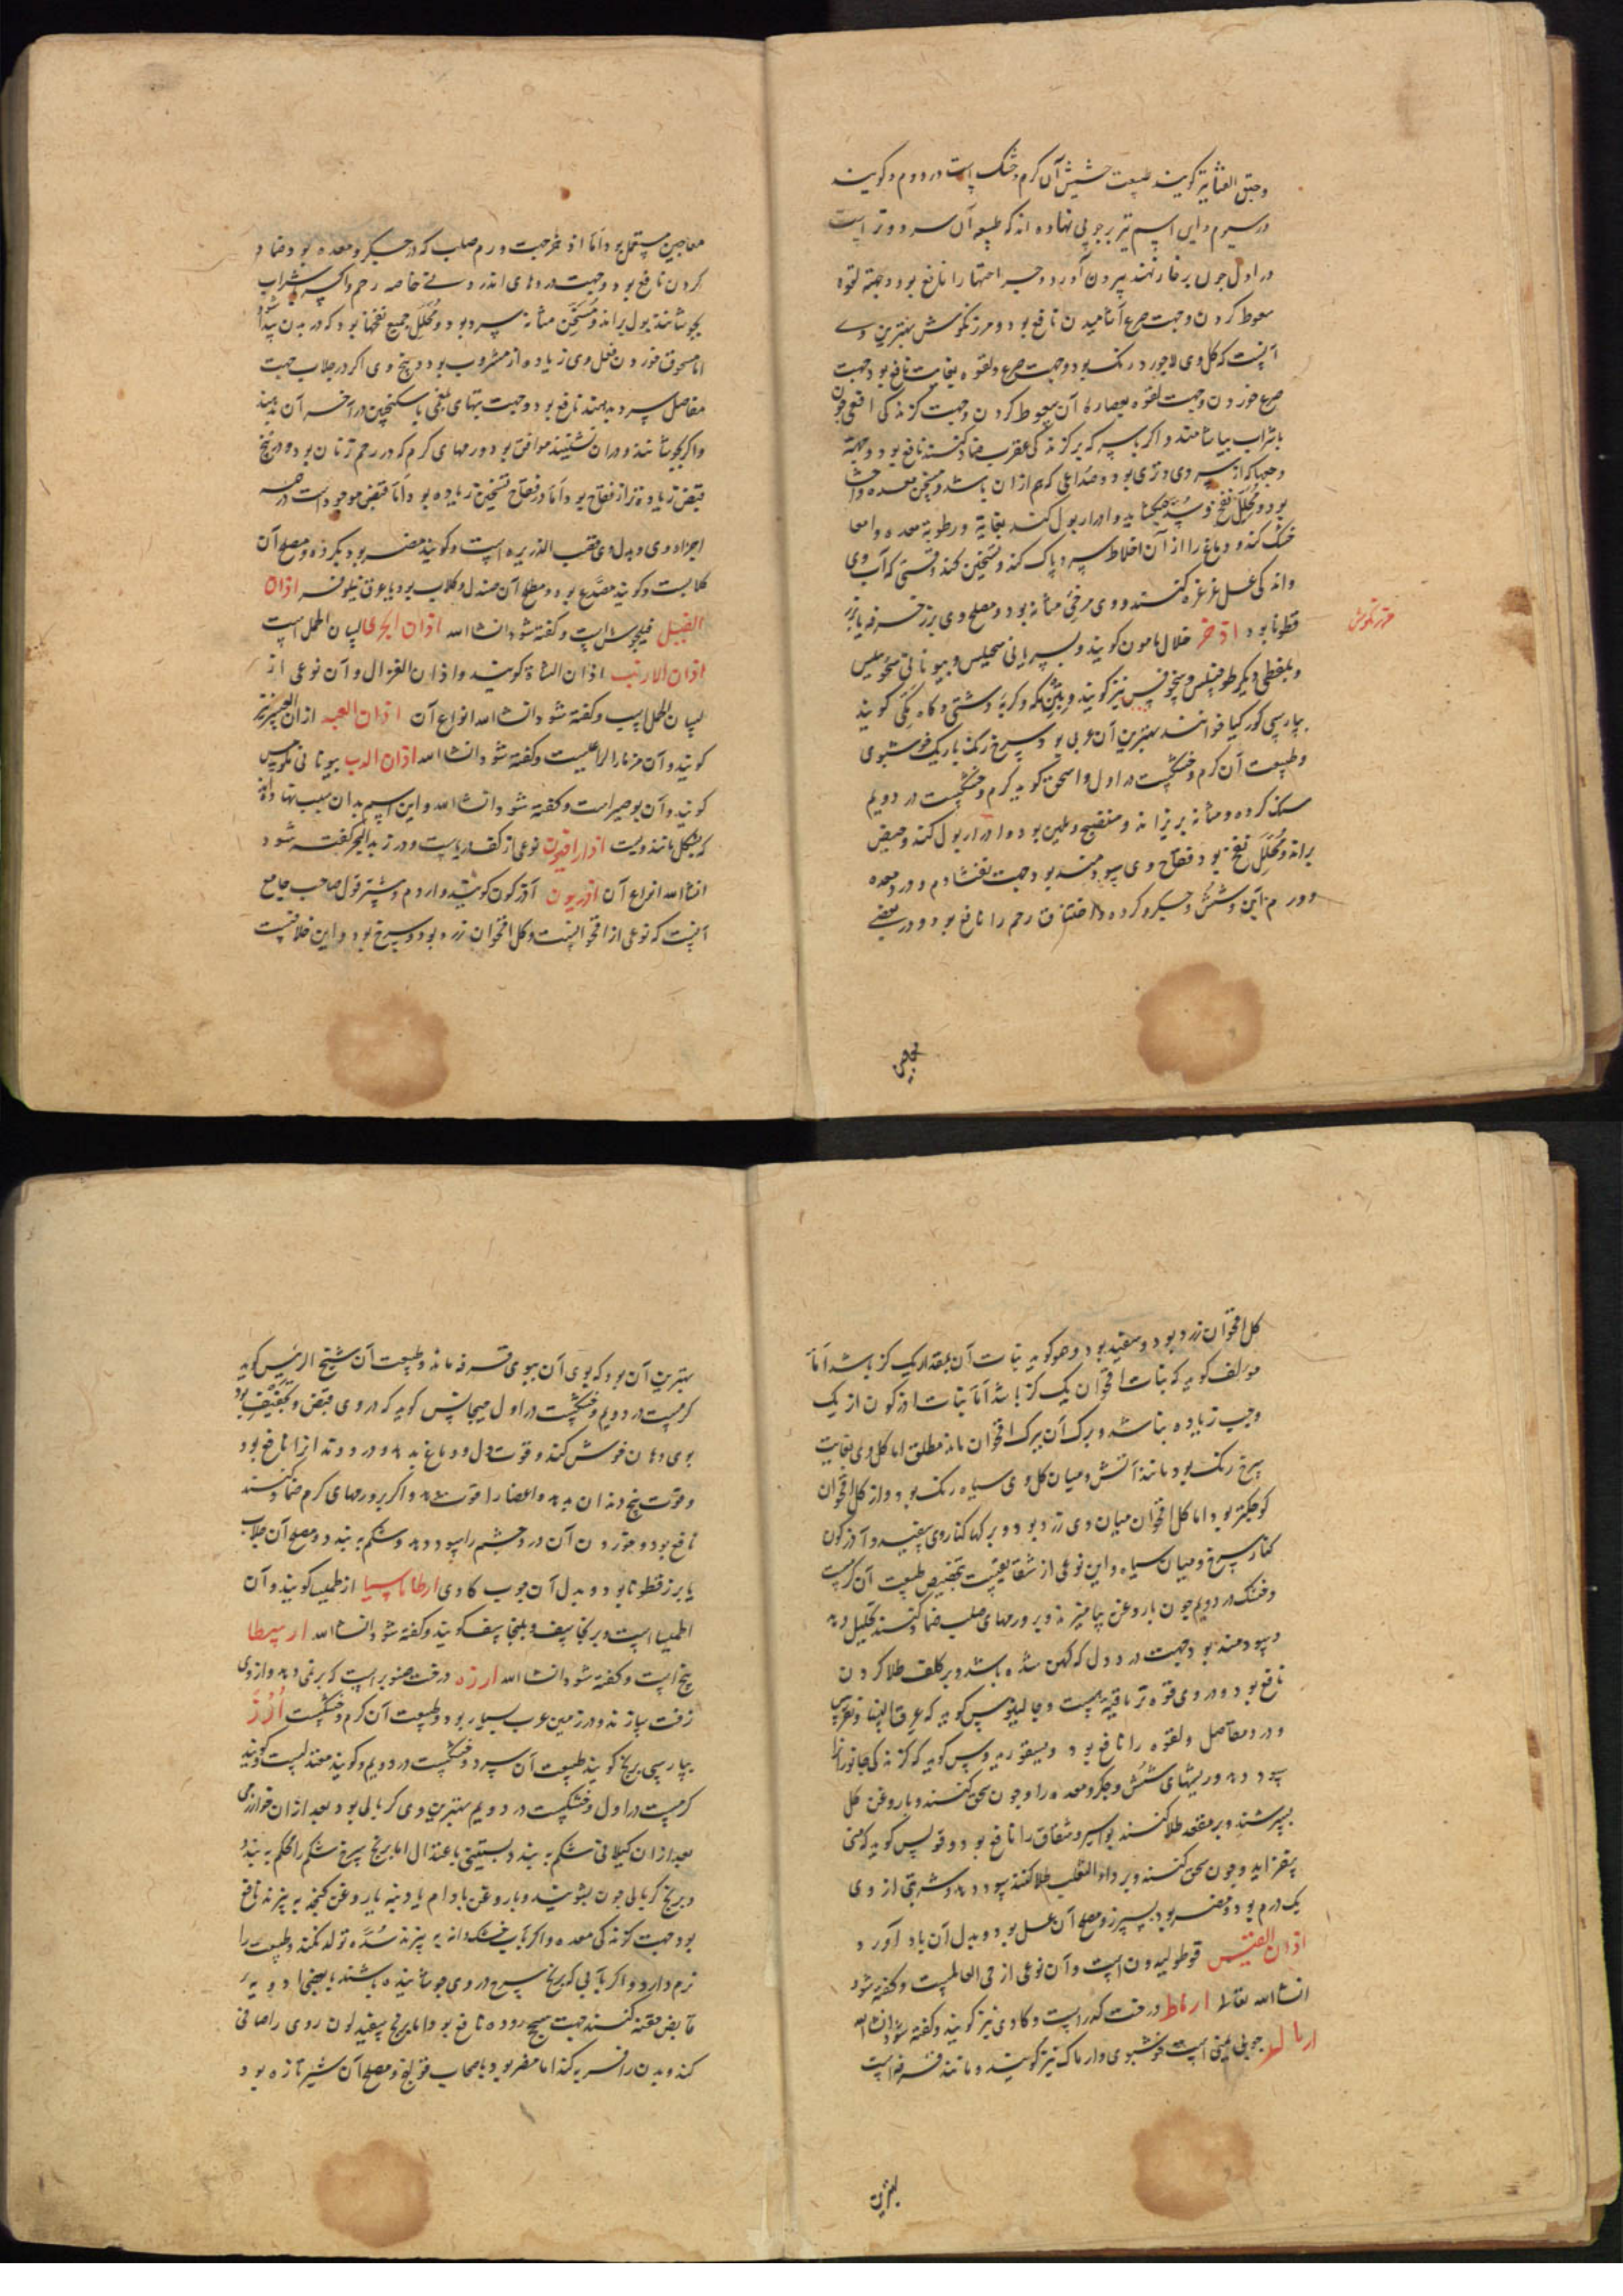 وحبق القثا نیز کویند طبیعت حشیش آن کرم و خشک است در دوم و کویند
در سیوم و این اسم نیز بر چوبی نهاده اند که طبیعه آن سرد و تر است
در اول چون بر خار نهند بیرون آورد و جراحتها را نافع بود و جهة لقوه
سعوط کردن و جهت صرع آشامیدن نافع بود و مرزنکوش بهترین وی
آنست که کل وی لاجورد رنک بود و جهت صرع و لقوه بغایت نافع بود و جهت
صرع خوردن و جهت لقوه بعصاره آن سعوط کردن و جهت کزندکی افعی چون
با شراب بیاشامند و اکر با سرکه بر کزندکی عقرب ضماد کنند نافع بود و جهة
وجعها که از سردی و تری بود و صداعی که هم ازان باشد و مسخن معده و احشا
بود و محلل نفخ و سده بکشاید و ادرار بول کند بغایة و رطوبة معده و امعا
خشک کند و دماغ را از آن اخلاط سرد پاک کند و تسخین کند وقتی که آب وی
و اندکی عسل غرغره کنند و وی مرخی مثانه بود و مصلح وی بزر خرفه یا بزر
مرزنکوش
قطونا بود اذخر خلال مامون کویند و بسریانی سحیلس و بیونانی سخوسلیس
و بلفظی دیکر طوفیلس و سخوفس نیز کویند و بتبن مکه و کربه دشتی و کاه مکی کویند
بپارسی کورکیا خوانند بهترین آن عربی بود سرخ رنک باریک خوشبوی
و طبیعت آن کرم و خشکست در اول و اسحق کوید کرم و خشکست در دویم
سنک کرده و مثانه بریزاند و منضج و ملین بود و ادرار بول کند و حیض
براند و محلل نفخ بود فقاح وی سودمند بود جهت نفث دم و درد معده
و ورم آن و شش و جکر و کرده و اختناق رحم را نافع بود و در بعضی
معاجین
معاجین مستعمل بود اما اذخر جهت ورم صلب که در جکر و معده بود ضماد
کردن نافع بود و جهت دردهای اندرونی خاصه رحم و اکر بشراب
بجوشانند بول براند و مسخن مثانه سرد بود و محلل جمیع نفخها بود که در بدن پیدا شود
اما مسحوق خوردن فعل وی زیاده از مشروب بود و بیخ وی اکر در جلاب جهت
مفاصل سرد بدهند نافع بود و جهت تبهای بلغمی با سکنجبین در آخر آن بدهند
و اکر بجوشانند و دران نشینند موافق بود ورمهای کرم که در رحم زنان بود و در بیخ
قبض زیاده تر از فقاح بود و اما در فقاح تسخین زیاده بود و اما قبض موجود است در همه
اجزاء وی و بدل وی قصب الذریره است و کویند مضر بود بکرده و مصلح آن
کلابست و کویند مصدع بود و مصلح آن صندل و کلاب بود یا عرق نیلوفر اذان
الفیل فیلجوش است و کفته شود انشاالله اذان الجدی لسان الحمل است
اذان الارنب اذان الشاة کویند و اذان الغزال و آن نوعی از
لسان الحمل است و کفته شود انشاالله انواع آن اذان العبد اذان العنز نیز
کویند و آن مزمار الراعیست و کفته شود انشاالله اذان الدب بیونانی
کویند و آن بوصیر است و کفته شود انشاالله و این اسم بدان سبب نهاده اند
که بشکل مانند ویست اذاراقیون نوعی از کف دریاست و در زبد البحر کفته شود
انشاالله انواع آن اذریون آذرکون کویند و اردم و شتر قول صاحب جامع
آنست که نوعی از اقحوانست و کل اقحوان زرد بود و سرخ بود و این خلافست
کل اقحوان زرد بود و سفید بود و هو کوید نبات آن بمقدار یک کز باشد اما
مولف کوید که نبات اقحوان یک کز باشد اما نبات اذرکون از یک
وجب زیاده نباشد و برک آن ببرک اقحوان ماند مطلق اما کل وی بغایت
سرخ رنک بود مانند آتش و میان کل وی سیاه رنک بود و از کل اقحوان
کوچکتر بود اما کل اقحوان میان وی زرد بود و برکها کنار وی سفید و آذرکون
کنار سرخ و میان سیاه و این نوعی از شقایقست بتخصیص طبیعت آن کرمست
و خشک در دویم چون با روغن بیامیزند و بر ورمهای صلب ضماد کنند تحلیل دهد
و سودمند بود جهت درد دل که کهن شده باشد و بر کلف طلا کردن
نافع بود و در وی قوه تریاقیة هست و جالینوس کوید که عرق النسا و نقرس
و درد مفاصل و لقوه را نافع بود و دیسقوریدوس کوید که کزندکی جانورانرا
سود دهد و ریشهای شش و جکر و معده را و چون سحق کنند و با روغن کل
بسرشند و بر مقعد طلا کنند بواسیر و شقاق را نافع بود و فولس کوید که منی
بیفزاید و چون سحق کنند و بر داء الثعلب طلا کنند سود دهد و شربتی از وی
یک درم بود و مضر بود بسپرز و مصلح آن عسل بود و بدل آن باد آورد
اذان القسیس قوطولیدون است و آن نوعی از حی العالمست و کفته شود
انشاالله تعالی ارماط درخت کدر است و کادی نیز کویند و کفته شود انشاالله
ارمال چوبی یمنی است خوشبوی و ارماک نیز کویند و مانند قرفه است
بهترین
بهترین آن بود که بوی آن ببوی قرفه ماند و طبیعت آن شیخ الرئیس کوید
کرمست در دویم و خشکست در اول مسیح کوید که در وی قبض و تجفیف بود
بوی دهان خوش کند و قوت دل و دماغ بدهد و درد دندانرا نافع بود
و قوت بیخ دندان بدهد و اعضا را قوت دهد و اکر بر ورمهای کرم ضماد کنند
نافع بود و خوردن آن درد چشم را سود دهد و شکم ببندد و مصلح آن جلاب
یا بزر قطونا بود و بدل آن چوب کادی ارطاماسیا ارطمیسا کویند و آن
اطمیسا است و برنجاسف و بلنجاسف کویند و کفته شود انشاالله ارسطا
بنج است و کفته شود انشاالله ارزه درخت صنوبر است که بر نمی دهد و از وی
زفت سازند و در زمین عرب بسیار بود و طبیعت آن کرم و خشکست ارز
بپارسی برنج کویند طبیعت آن سرد و خشکست در دویم و کویند معتدلست و کویند
کرمست در اول و خشکست در دویم بهترین وی کربالی بود بعد ازان خوارزمی
بعد ازان کیلانی شکم ببندد بستنی باعتدال اما برنج سرخ شکم را محکم ببندد
و برنج کربالی چون بشویند و با روغن بادام یا دنبه یا روغن کنجد بپزند نافع
بود جهت کزندکی معده و اکر بآب خشکدانه بپزند سده تولد نکند و طبیعت را
نرم دارد و اکر بآبی که برنج سرخ در وی جوشانیده باشند با بعضی ادویه
قابض حقنه کنند جهت سحج روده نافع بود اما برنج سفید لون روی را صافی
کند و بدن را فربه کند اما مضر بود باصحاب قولنج و مصلح آن شیر تازه بود